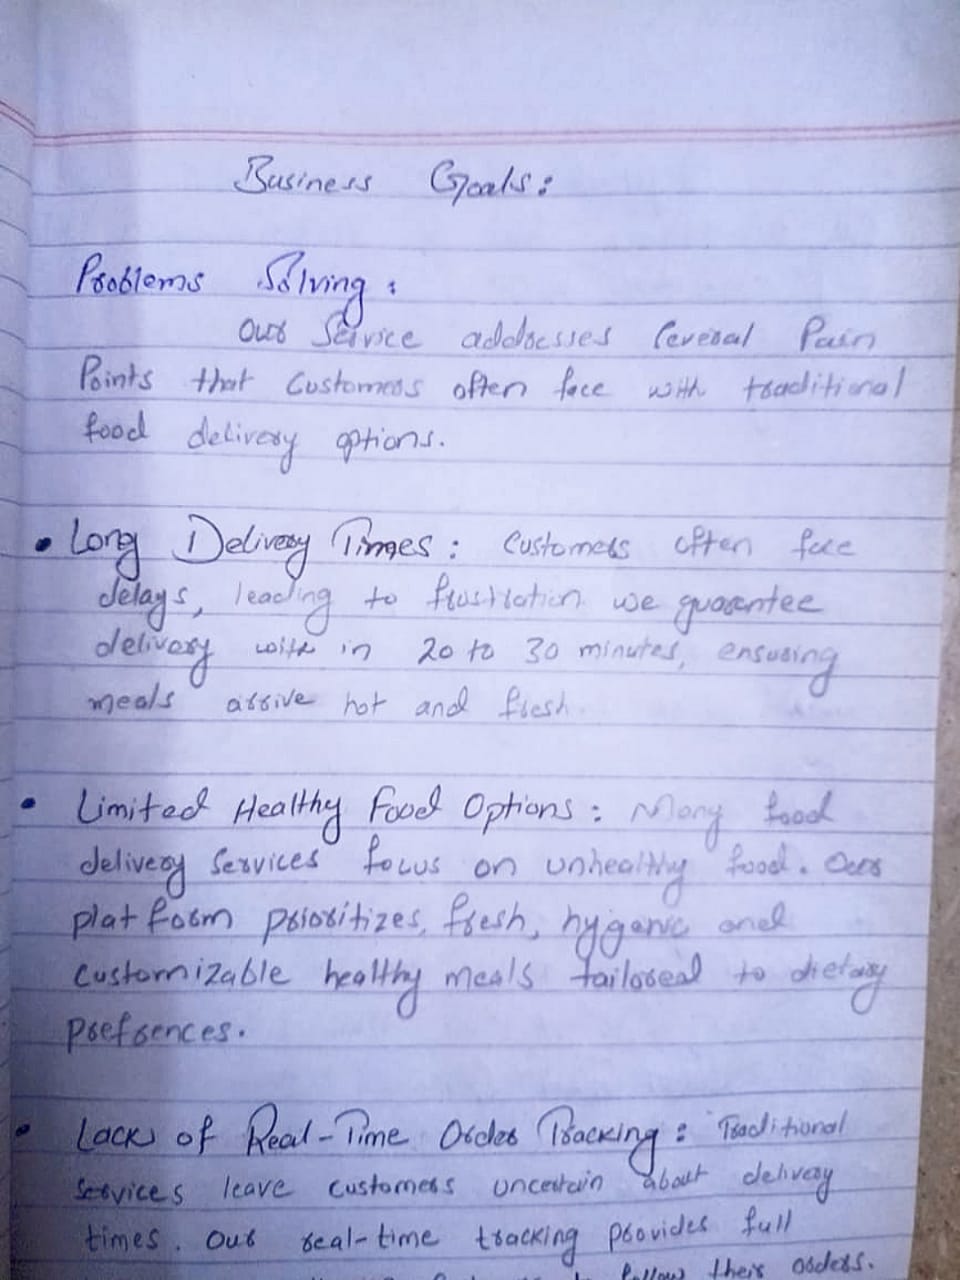 Business Goals:
Problems Solving:
Our Service addresses several Pain
Points that Customers often face with traditional
food delivery options.
• Long Delivery Times: Customers often face
delays, leading to frustration we guarantee
delivery with in 20 to 30 minutes, ensuring
meals arrive hot and fresh.
• Limited Healthy Food Options: Many food
delivery Services focus on unhealthy food. Our
platform prioritizes, fresh, hygenic and
Customizable healthy meals tailored to dietary
prefrences.
• Lack of Real-Time Order Tracking: Traditional
Services leave customers uncertain about delivery
times. Our real-time tracking provides full
to follow their orders.